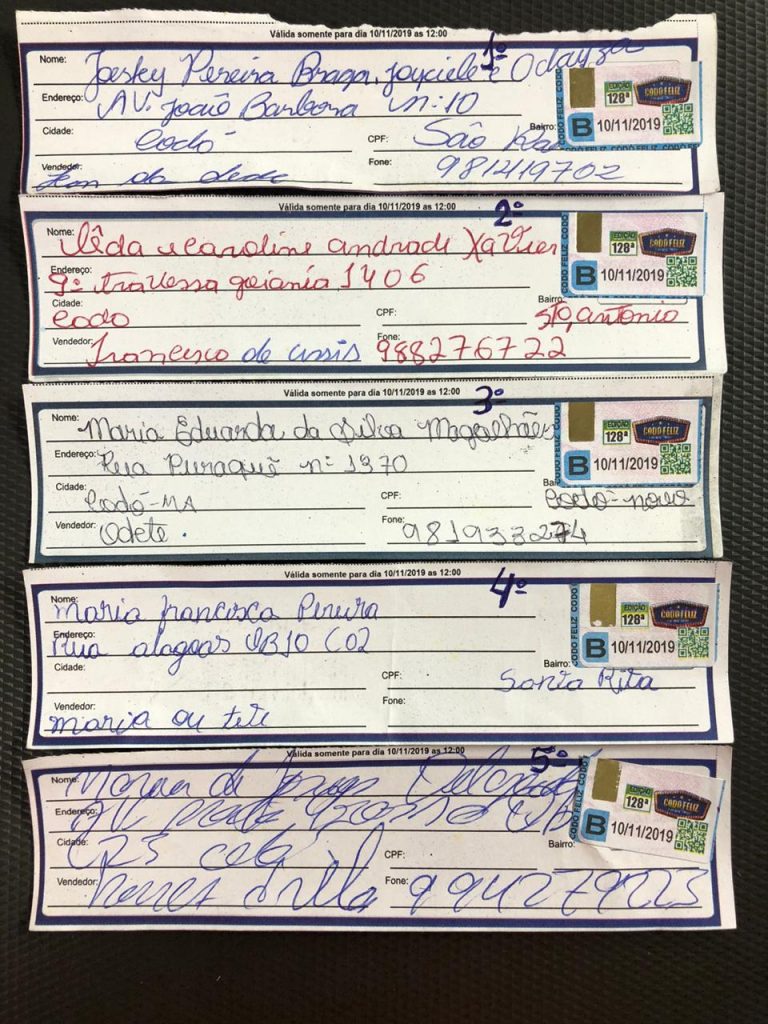 Válida somente para dia 10/11/2019 as 12:00
1º
Nome: Joesley Pereira Braga, Joyciele e Odayza
Endereço: AV: João Barbosa n:10
Cidade: Codó CPF: Bairro: São
Vendedor: Fone: 981419702
CODO FELIZ
EDIÇÃO
128ª
CODÓ FELIZ
B 10/11/2019
Válida somente para dia 10/11/2019 as 12:00
2º
Nome: Lêda e Caroline Andrade Xavier
Endereço: 9ª travessa goiania 1406
Cidade: Codo CPF: Bairro: Stº, Antonio
Vendedor: Francisco de assis Fone: 988276722
CODO FELIZ
EDIÇÃO
128ª
CODÓ FELIZ
B 10/11/2019
Válida somente para dia 10/11/2019 as 12:00
3º
Nome: Maria Eduarda da Silva Magalhães
Endereço: Rua Puraquê nº 1370
Cidade: Codó-MA CPF: Codó-novo
Vendedor: Odete. Fone: 981933274
EDIÇÃO
128ª
CODÓ FELIZ
B 10/11/2019
Válida somente para dia 10/11/2019 as 12:00
4º
Nome: Maria francisca Pereira
Endereço: Rua alagoas QB10 C02
Cidade: CPF: Bairro: Santa Rita
Vendedor: maria ou tete Fone:
CODO FELIZ
EDIÇÃO
128ª
CODÓ FELIZ
B 10/11/2019
Válida somente para dia 10/11/2019 as 12:00
5º
Nome:
Endereço:
Cidade: CPF: Bairro:
Vendedor: Fone: 994279223
CODO FELIZ
EDIÇÃO
128ª
CODÓ FELIZ
B 10/11/2019